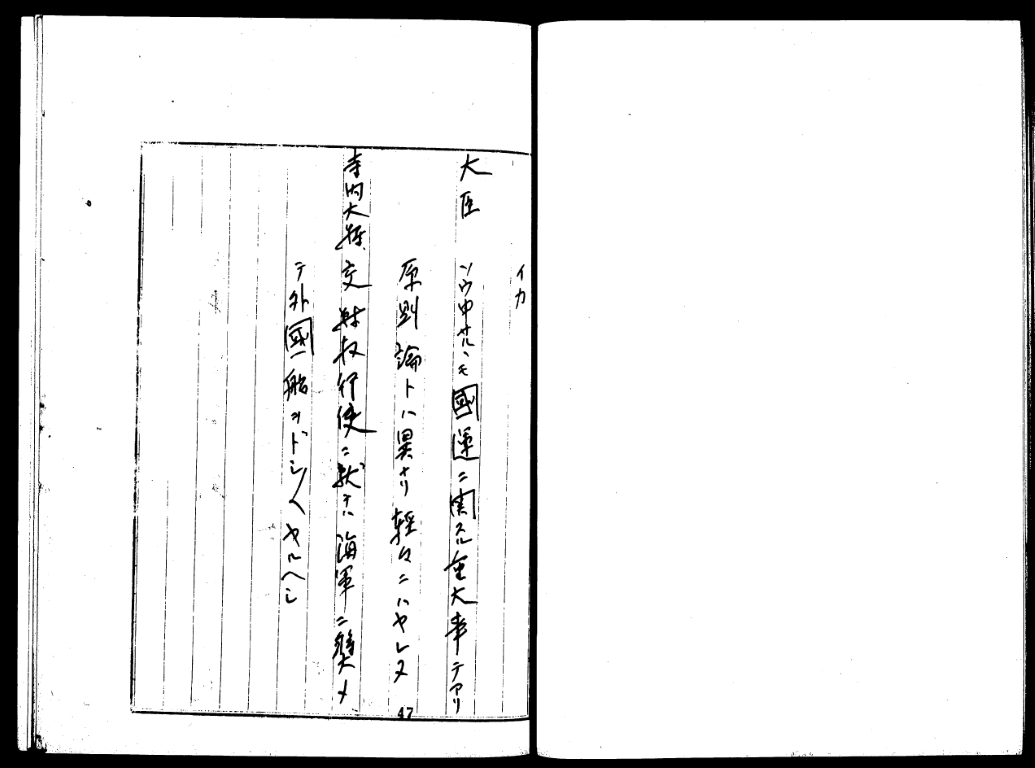 イカ
大臣 ソウ申サルヽモ國運ニ関スル重大事デアリ
原則論トハ異ナリ軽々ニハヤレヌ
寺内大 交戦权行使ニ就テハ海軍ニ奬メ
テ外國船ヲドシ〱ヤルヘシ
47